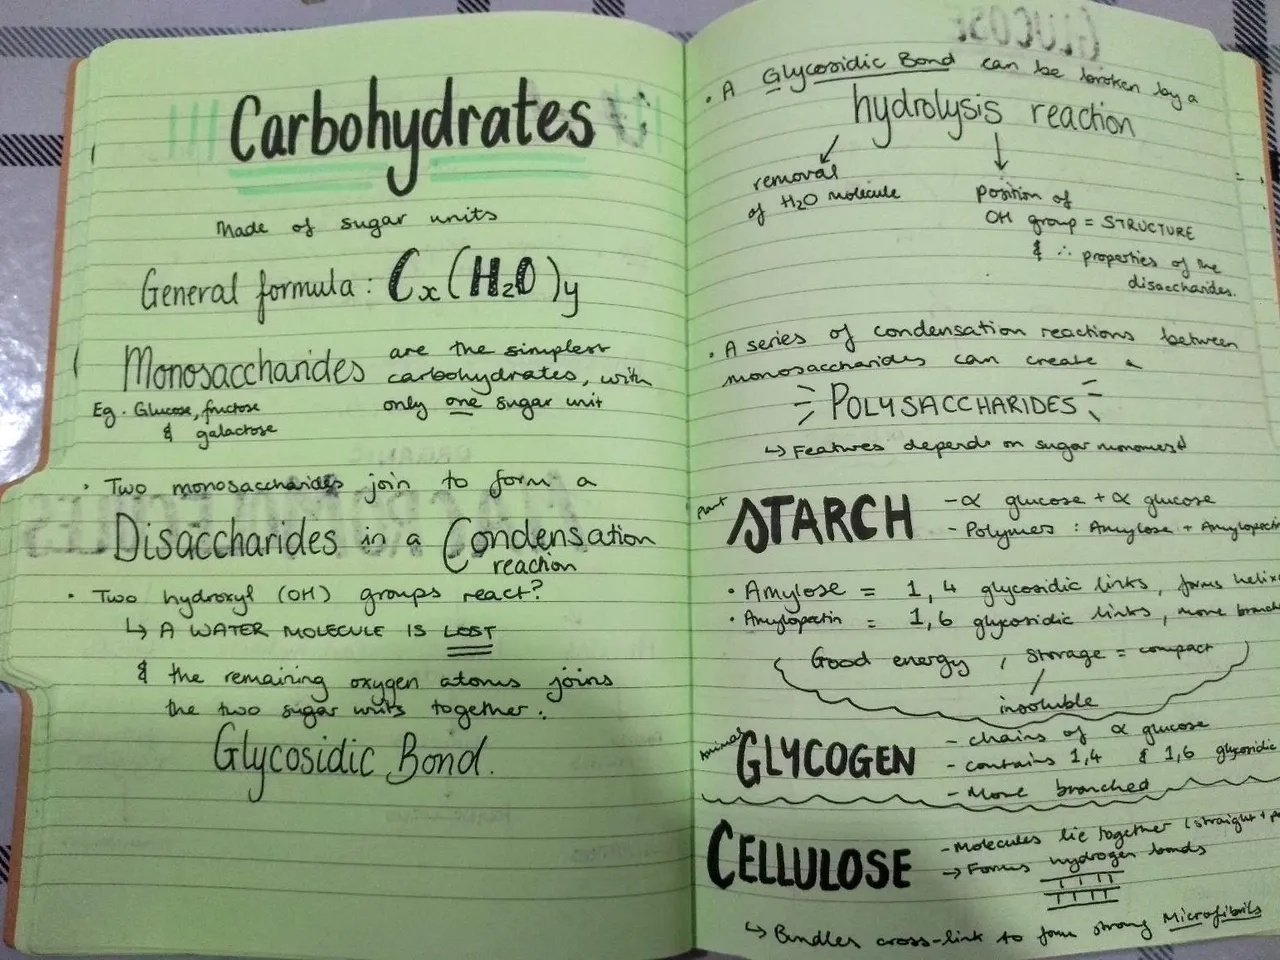 Carbohydrates:
Made of sugar units
General formula: Cx(H2O)y
Monosaccharides are the simplest
carbohydrates, with
only one sugar unit
Eg. Glucose, fructose
& galactose
· Two monosaccharides join to form a
Disaccharides in a Condensation
reaction
· Two hydroxyl (OH) groups react?
↳ A WATER MOLECULE IS LOST
& the remaining oxygen atoms joins
the two sugar units together.
Glycosidic Bond.
GLUCOSE
· A Glycosidic Bond can be broken by a
hydrolysis reaction
removal
of H2O molecule
position of
OH group = STRUCTURE
& ∴ properties of the
disaccharides.
· A series of condensation reactions between
monosaccharides can create a
POLYSACCHARIDES
↳ Features depends on sugar monomers
STARCH - α glucose + α glucose
- Polymers : Amylose +
· Amylose = 1,4 glycosidic links, forms
· Amylopectin = 1,6 glycosidic links, more
Good energy, storage = compact
insoluble
Animal GLYCOGEN - chains of α glucose
- contains 1,4 & 1,6 glycosidic
- More branched
CELLULOSE - Molecules lie together (straight +
→ Forms hydrogen bonds
↳ Bundles cross-link to form strong Microfibrils